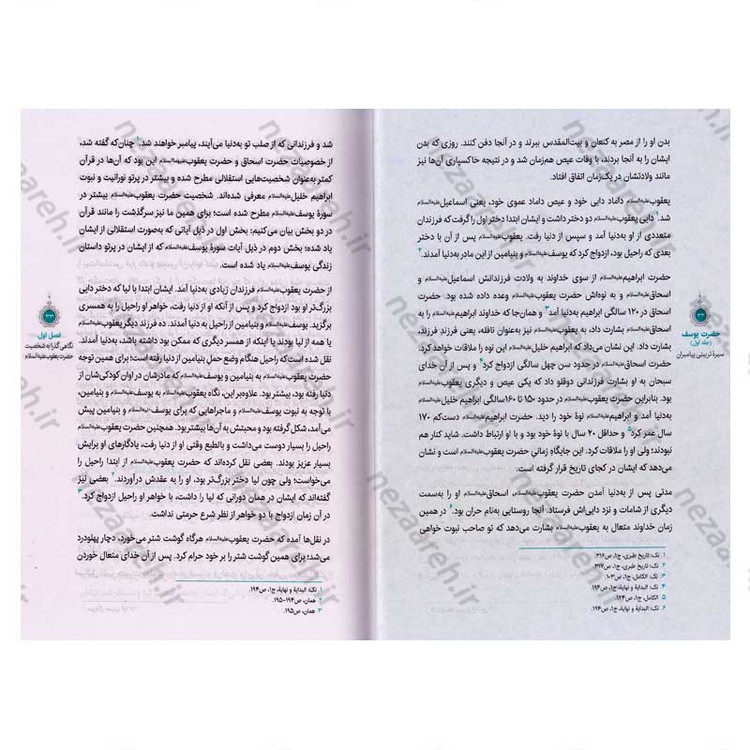 حضرت یوسف
(جلد اول)
سیرهٔ تربیتی پیامبران
بدن او را از مصر به کنعان و بیت‌المقدس ببرند و در آنجا دفن کنند. روزی که بدن
ایشان را به آنجا بردند، با وفات عیص هم‌زمان شد و در نتیجه خاکسپاری آن‌ها نیز
مانند ولادتشان در یک‌زمان اتفاق افتاد.
یعقوب علیه‌السلام داماد دایی خود و عیص داماد عموی خود، یعنی اسماعیل علیه‌السلام
شد.۱ دایی یعقوب علیه‌السلام دو دختر داشت و ایشان ابتدا دختر اول را گرفت که فرزندان
متعددی از او به‌دنیا آمد و سپس از دنیا رفت. یعقوب علیه‌السلام پس از آن با دختر
بعدی که راحیل بود، ازدواج کرد که یوسف علیه‌السلام و بنیامین از این مادر به‌دنیا آمدند.۲
حضرت ابراهیم علیه‌السلام از سوی خداوند به ولادت فرزندانش اسماعیل علیه‌السلام و
اسحاق علیه‌السلام و به نوه‌اش حضرت یعقوب علیه‌السلام وعده داده شده بود. حضرت
اسحاق علیه‌السلام در ۱۲۰ سالگی ابراهیم به‌دنیا آمد۳ و همان‌جا که خداوند ابراهیم علیه‌السلام را به
اسحاق علیه‌السلام بشارت داد، به یعقوب علیه‌السلام نیز به‌عنوان نافله، یعنی فرزندِ فرزند،
بشارت داد. این نشان می‌داد که ابراهیم خلیل علیه‌السلام این نوه را ملاقات خواهد کرد.
حضرت اسحاق علیه‌السلام در حدود سن چهل سالگی ازدواج کرد۴ و پس از آن خدای
سبحان به او بشارت فرزندانی دوقلو داد که یکی عیص و دیگری یعقوب علیه‌السلام
بود. بنابراین حضرت یعقوب علیه‌السلام در حدود ۱۵۰ تا ۱۶۰سالگی ابراهیم خلیل علیه‌السلام
به‌دنیا آمد و ابراهیم علیه‌السلام نوهٔ خود را دید. حضرت ابراهیم علیه‌السلام دست‌کم ۱۷۰
سال عمر کرد۵ و حداقل ۲۰ سال با نوهٔ خود بود و با او ارتباط داشت. شاید کنار هم
نبودند؛ ولی او را ملاقات کرد. این جایگاه زمانی حضرت یعقوب علیه‌السلام است و نشان
می‌دهد که ایشان در کجای تاریخ قرار گرفته است.
مدتی پس از به‌دنیا آمدن حضرت یعقوب علیه‌السلام، اسحاق علیه‌السلام او را به‌سمت
دیگری از شامات و نزد دایی‌اش فرستاد. آنجا روستایی به‌نام حران بود.۶ در همین
زمان خداوند متعال به یعقوب علیه‌السلام بشارت می‌دهد که تو صاحب نبوت خواهی
۱. نک: تاریخ طبری، ج۱، ص۳۱۶.
۲. نک: تاریخ طبری، ج۱، ص۳۱۷.
۳. نک: الکامل، ج۱، ص۱۰۳.
۴. نک: البدایة و نهایة، ج۱، ص۱۹۴.
۵. الکامل، ج۱، ص۱۲۴.
۶. نک: البدایة و نهایة، ج۱، ص۱۹۴.
فصل اول
نگاهی گذرا به شخصیت
حضرت یعقوب علیه‌السلام
شد و فرزندانی که از صلب تو به‌دنیا می‌آیند، پیامبر خواهند شد.۱ چنان‌که گفته شد،
از خصوصیات حضرت اسحاق و حضرت یعقوب علیهماالسلام این بود که آن‌ها در قرآن
کمتر به‌عنوان شخصیت‌هایی استقلالی مطرح شده و بیشتر در پرتو نورانیت و نبوت
ابراهیم خلیل علیه‌السلام معرفی شده‌اند. شخصیت حضرت یعقوب علیه‌السلام بیشتر در
سورهٔ یوسف علیه‌السلام مطرح شده است؛ برای همین ما نیز سرگذشت را مانند قرآن
در دو بخش بیان می‌کنیم: بخش اول در ذیل آیاتی که به‌صورت استقلالی از ایشان
یاد شده؛ بخش دوم در ذیل آیات سورهٔ یوسف علیه‌السلام که از ایشان در پرتو داستان
زندگی یوسف علیه‌السلام یاد شده است.
از حضرت یعقوب علیه‌السلام فرزندان زیادی به‌دنیا آمد. ایشان ابتدا با لیا که دختر دایی
بزرگ‌تر او بود ازدواج کرد و پس از آنکه او از دنیا رفت، خواهر او راحیل را به همسری
برگزید. یوسف علیه‌السلام و بنیامین از راحیل به دنیا آمدند. ده فرزند دیگر یعقوب علیه‌السلام
یا همه از لیا بودند یا اینکه از همسر دیگری که ممکن بود داشته باشد، به‌دنیا آمدند.
نقل شده است که راحیل هنگام وضع حمل بنیامین از دنیا رفته است؛ برای همین توجه
حضرت یعقوب علیه‌السلام به بنیامین و یوسف علیه‌السلام که مادرشان در اوان کودکی‌شان از
دنیا رفته بود، بیشتر بود. علاوه‌براین، نگاه یعقوب علیه‌السلام به یوسف علیه‌السلام و بنیامین،
با توجه به نبوت یوسف علیه‌السلام و ماجراهایی که برای یوسف علیه‌السلام و بنیامین پیش
می‌آمد، شکل گرفته بود و محبتش به آن‌ها بیشتر بود. همچنین حضرت یعقوب علیه‌السلام
راحیل را بسیار دوست می‌داشت و بالطبع وقتی او از دنیا رفت، یادگارهای او برایش
بسیار عزیز بودند. بعضی نقل کرده‌اند که حضرت یعقوب علیه‌السلام از ابتدا راحیل را
می‌خواست؛ ولی چون لیا دختر بزرگ‌تر بود، او را به عقدش درآوردند.۲ بعضی نیز
گفته‌اند که ایشان در همان دورانی که لیا را داشت، با خواهر او راحیل ازدواج کرد.۳
در آن زمان ازدواج با دو خواهر از نظر شرع حرمتی نداشت.
در نقل‌ها آمده که حضرت یعقوب علیه‌السلام هرگاه گوشت شتر می‌خورد، دچار پهلودرد
می‌شد؛ برای همین گوشت شتر را بر خود حرام کرد. پس از آن خدای متعال خوردن
۱. نک: البدایة و نهایة، ج۱، ص۱۹۴.
۲. همان، ص۱۹۴-۱۹۵.
۳. همان، ص۱۹۵.
nezaareh.ir